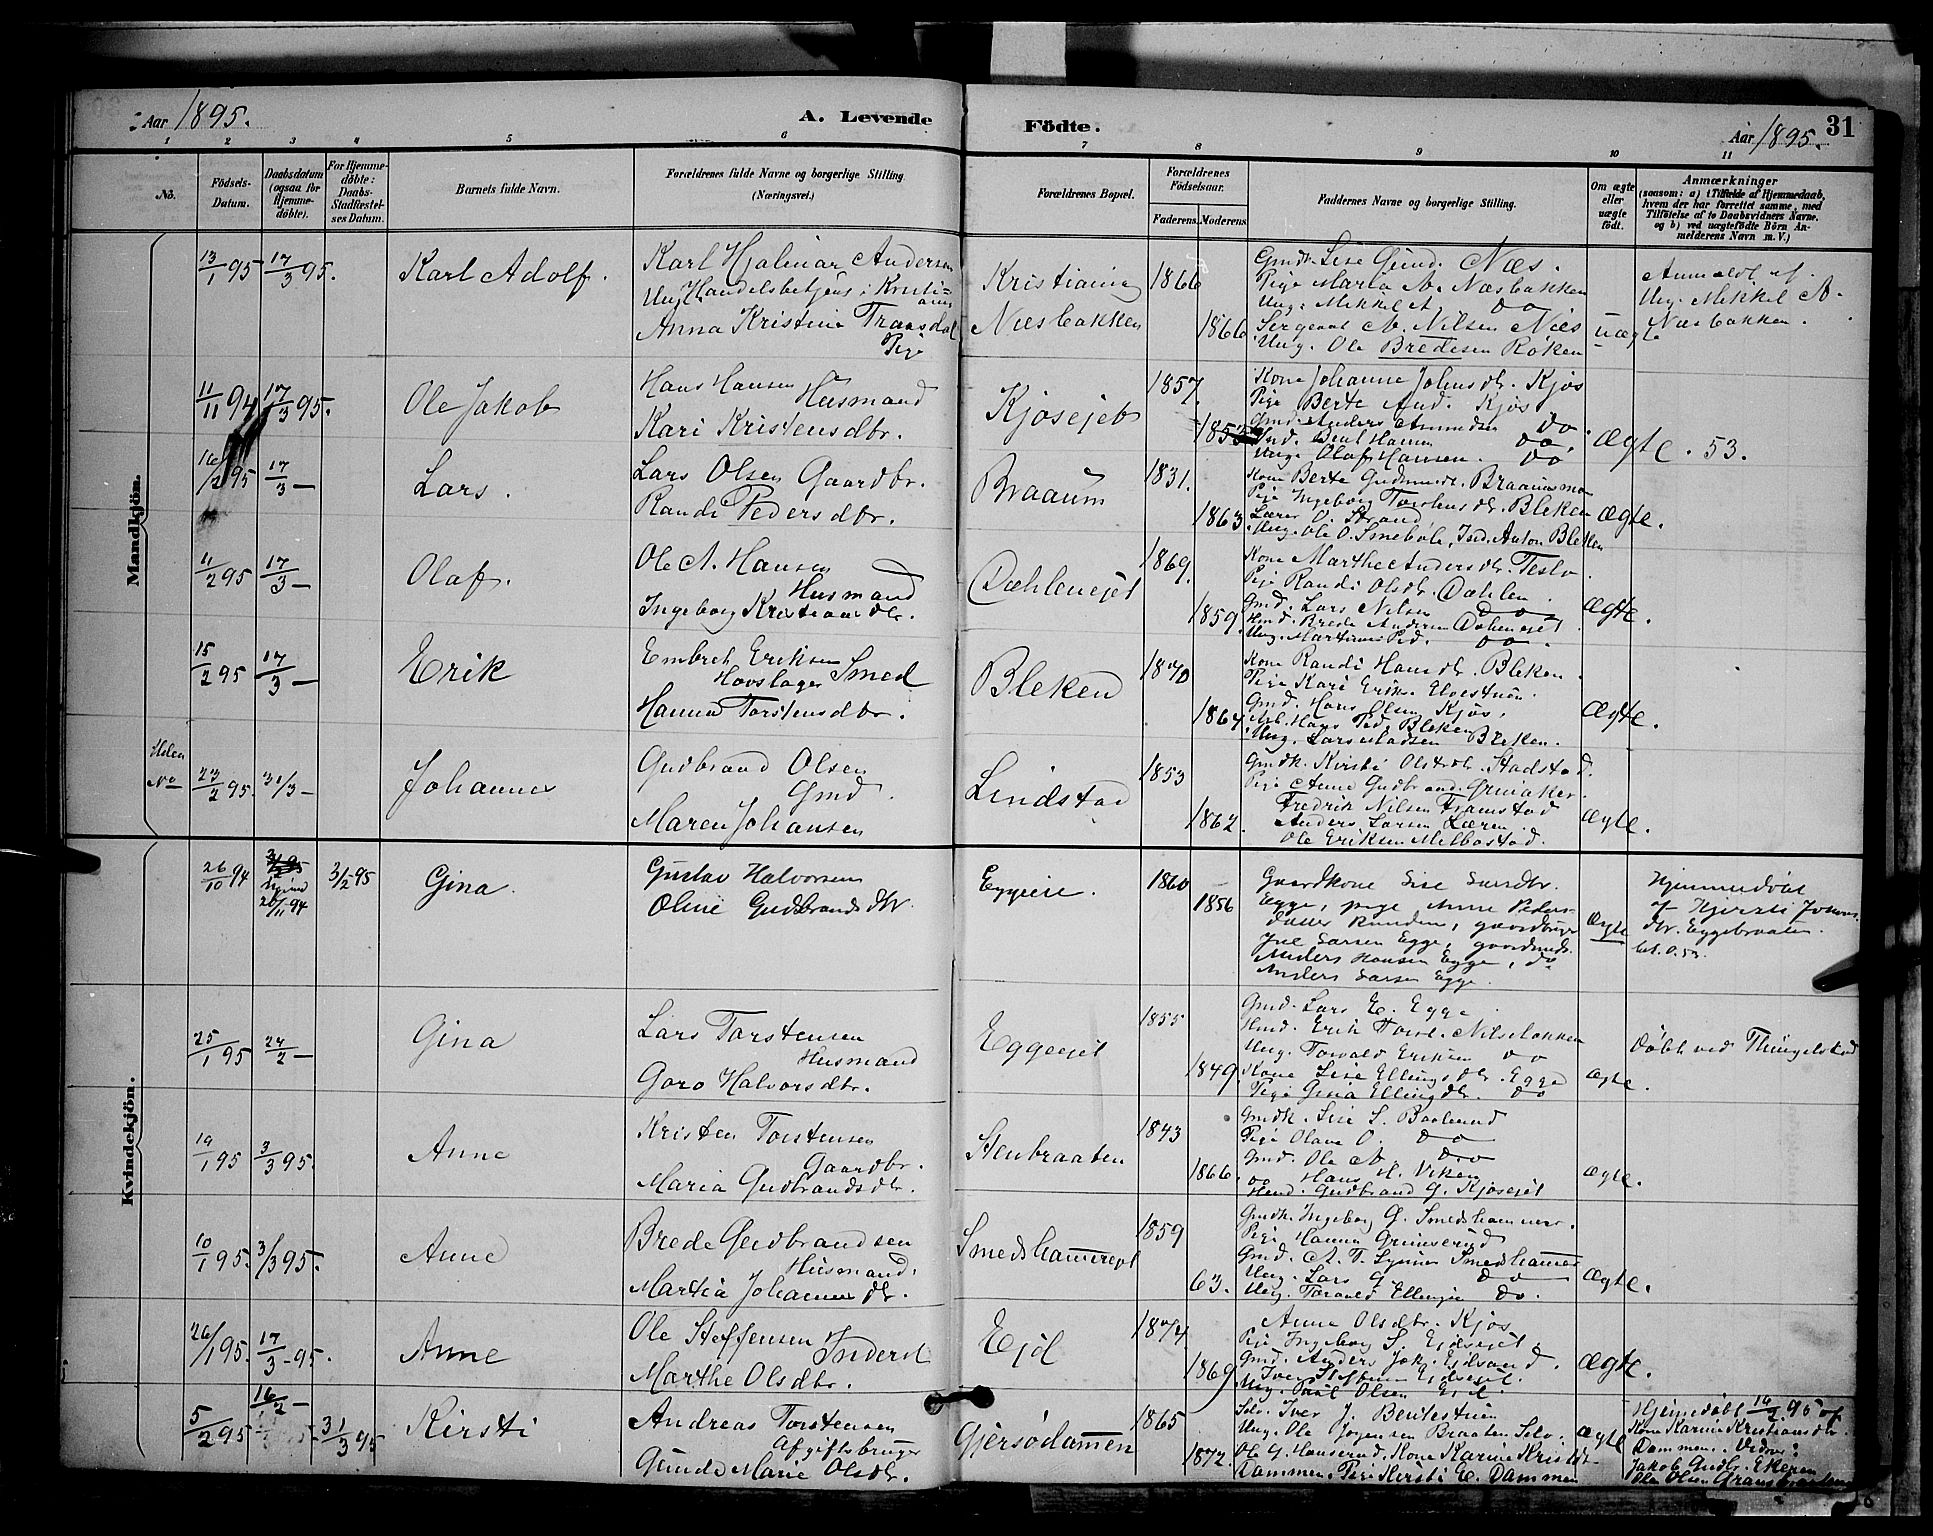 Aar 1895.
A. Levende
Födte.
Aar 1895.
31
1 2 3 4 5 6 7 8 9 10 11
No.
Födsels-
Datum.
Daabsdatum
(ogsaa for
Hjemme-
døbte).
For Hjemme-
døbte:
Daabs-
Stadfæstel-
ses Datum.
Barnets fulde Navn.
Forældrenes fulde Navne og borgerlige Stilling
(Næringsvei.)
Forældrenes Bopæl.
Forældrenes
Födselsaar.
Faderens. Moderens.
Faddernes Navne og borgerlige Stilling.
Om ægte
eller
uægte
født.
Anmærkninger
(saasom: a) i Tilfælde af Hjemmedaab,
hvem der har forrettet samme, med
Tilföielse af to Daabsvidners Navne.
og b) ved uægtefødte Börn An-
melderens Navn m. V.)
Mandkjön.
13/1 95 17/3 95. Karl Adolf.
Karl Hjalmar Andersen
Ung. Handelsbetjent i Kristi-
ania
Anna Kristine
Pige
Kristiania
Næsbakken
1866
1866
Gmdk. Lise Gund. Næs.
Pige Maria A. Næsbakken
Ung. Mikkel A. do
Sergeant A. Nilsen Næs
Ung. Ole Bredesen Røken
uægte
Anmeldt af
Ung. Mikkel A.
Næsbakken.
11/11 94 17/3 95. Ole Jakob
Hans Hansen
Husmand
Kari Kristensdtr.
Kjøsejet
1857.
1853
Kone Johanne Johnsdtr. Kjøs
Pige Berte And. Kjøs
Gmd. Anders Amundsen do
Ind. Hansen do
Ung. Olaf Hansen. do
Ægte. 53.
16/2 95 17/3 — Lars.
Lars Olsen Gaardbr.
Randi Pedersdtr.
Braaum
1831.
1863.
Kone Berte Gudmundsdtr. Braaumsmo
Pige Ingeborg Bleken
Lærer O. Strand
Ung. Ole O. Smebøle, Ind. Anton Bleken
Ægte.
11/2 95 17/3 — Olaf.
Ole A. Hansen
Husmand
Ingeborg Kristiansdtr.
Dæhlenejet
1869.
1859.
Kone Marthe Andersdtr. Teslo
Pige Randi Olsdtr. Dæhlen.
Gmd. Lars Nilsen do
Hmd. Brede Andersen Dæhlenejet
Ung. Martinus Ped. do.
Ægte.
15/2 95 17/3 — Erik
Embret Eriksen
Hovslager Smed
Hanna Torstensdtr.
Bleken
1870
1864
Kone Randi Hansdtr. Bleken.
Pige Kari Eriks.
Gmd. Hans Olsen Kjøs.
Arb. Hans Ped. Bleken
Ung. Lars Madsen Bleken.
Ægte.
No 23/2 95. 31/3 — Johannes
Gudbrand Olsen
Gmd.
Maren Johansen
Lindstad
1853
1862.
Gmdk. Kirsti Olsdtr. Stadstad.
Pige Anne Gudbrand. Grinaker.
Fredrik Nilsen Framstad
Anders Larsen Læren.
Ole Eriksen Melbostad.
Ægte.
Kvindekjön.
26/10 94
Hjem
20/11 94
3/2 95
Gina.
Gustav Halvorsen
Oline Gudbrandsdtr.
Eggeie.
1860
1856
Gaardkone Lise Larsdtr.
Egge, pige Anne Peders-
datter Randen, gaardbruger
Juel Larsen Egge, gaardmds.
Anders Hansen Egge, do
Anders Larsen Egge.
Ægte
Hjemmedøbt
af Kjersti Johans
dtr. Eggebraaten.
25/1 95 24/2 — Gina
Lars Torstensen
Husmand
Goro Halvorsdtr.
Eggeejet
1855
1849.
Gmd. Lars E. Egge
Hmd. Erik Torst. Nilsbakken
Ung. Torvald Eriksen do
Kone Lise Ellingsdtr. Egge
Pige Gina Ellingsdtr. do
Ægte.
Døbt ved Thingelstad
19/1 95 3/3 95. Anne
Kristen Torstensen
Gaardbr.
Maria Gudbrandsdtr.
Stenbraaten
1843
1866.
Gmdk. Lise S. Baalerud
Pige Olava O. do
Gmd. Ole A. do
do Hans H. Viken
Hmd. Gudbrand G. Kjøsejet
Ægte.
10/1 95. 3/3 95. Anne
Brede Gudbrandsen
Husmand.
Martia Johannesdtr.
Smedshamerejet
1859
63.
Gmdk. Ingeborg G. Smedshammer.
Pige Hanna Grinserud
Gmd. A. T. Lynne Smedshammer
Ung. Lars G. do
Ung. Torvald Ellingsen do.
Ægte.
26/1 95. 17/3 -95. Anne
Ole Steffensen
Inderst
Marthe Olsdtr.
Ejd
1874
1869
Anne Olsdtr. Kjøs
Pige Ingeborg S. Ejdsejet.
Gmd. Anders Jak. Ejdsand.
Iver Steffensen Ejdsejet.
Ung. Paul Olsen Ejd.
Ægte.
5/2 95 16/2 — 31/3 95 Kirsti
Andreas Torstensen
Afgiftsbruger
Gunda Marie Olsdtr.
Gjersödammen
1865
1872.
Selv. Iver J. Bentestuen
Ung. Ole Jørgensen Braaten Selv.
Ole G. Hanserud, Kone Karine Kristdt.
Dammen. Pige Kirsti E. Dammen
Ægte
Hjemedøbt 16/2 95 af
Kone Karine Kristiansdtr.
Dammen. Vidner:
Jakob Gudbr. Ekeren
Ole Olsen